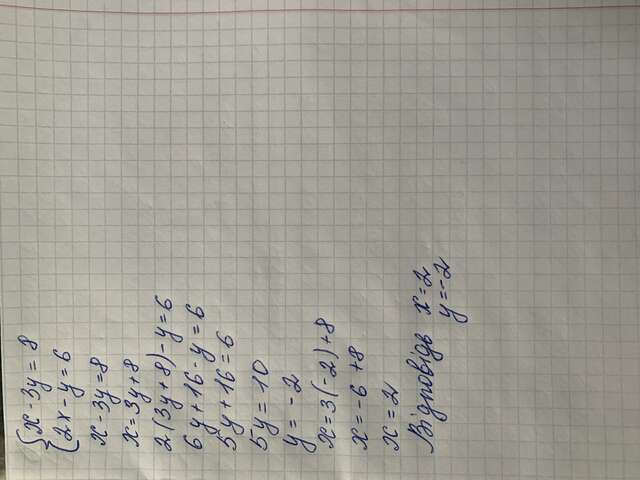 {x - 3y = 8
{2x - y = 6
x - 3y = 8
x = 3y + 8
2(3y + 8) - y = 6
6y + 16 - y = 6
5y + 16 = 6
5y = -10
y = -2
x = 3(-2) + 8
x = -6 + 8
x = 2
Відповідь x = 2
y = -2